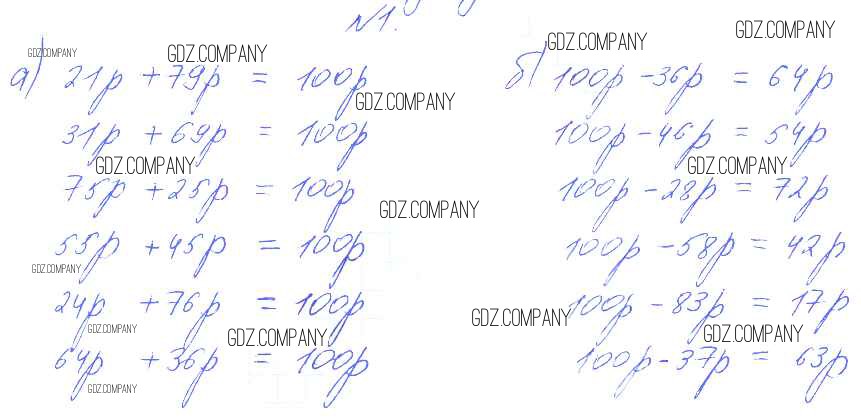 №1.
а) 21р + 79р = 100р
31р + 69р = 100р
75р + 25р = 100р
55р + 45р = 100р
24р + 76р = 100р
64р + 36р = 100р
б) 100р - 36р = 64р
100р - 46р = 54р
100р - 28р = 72р
100р - 58р = 42р
100р - 83р = 17р
100р - 37р = 63р
GDZ.COMPANY
GDZ.COMPANY
GDZ.COMPANY
GDZ.COMPANY
GDZ.COMPANY
GDZ.COMPANY
GDZ.COMPANY
GDZ.COMPANY
GDZ.COMPANY
GDZ.COMPANY
GDZ.COMPANY
GDZ.COMPANY
GDZ.COMPANY
GDZ.COMPANY